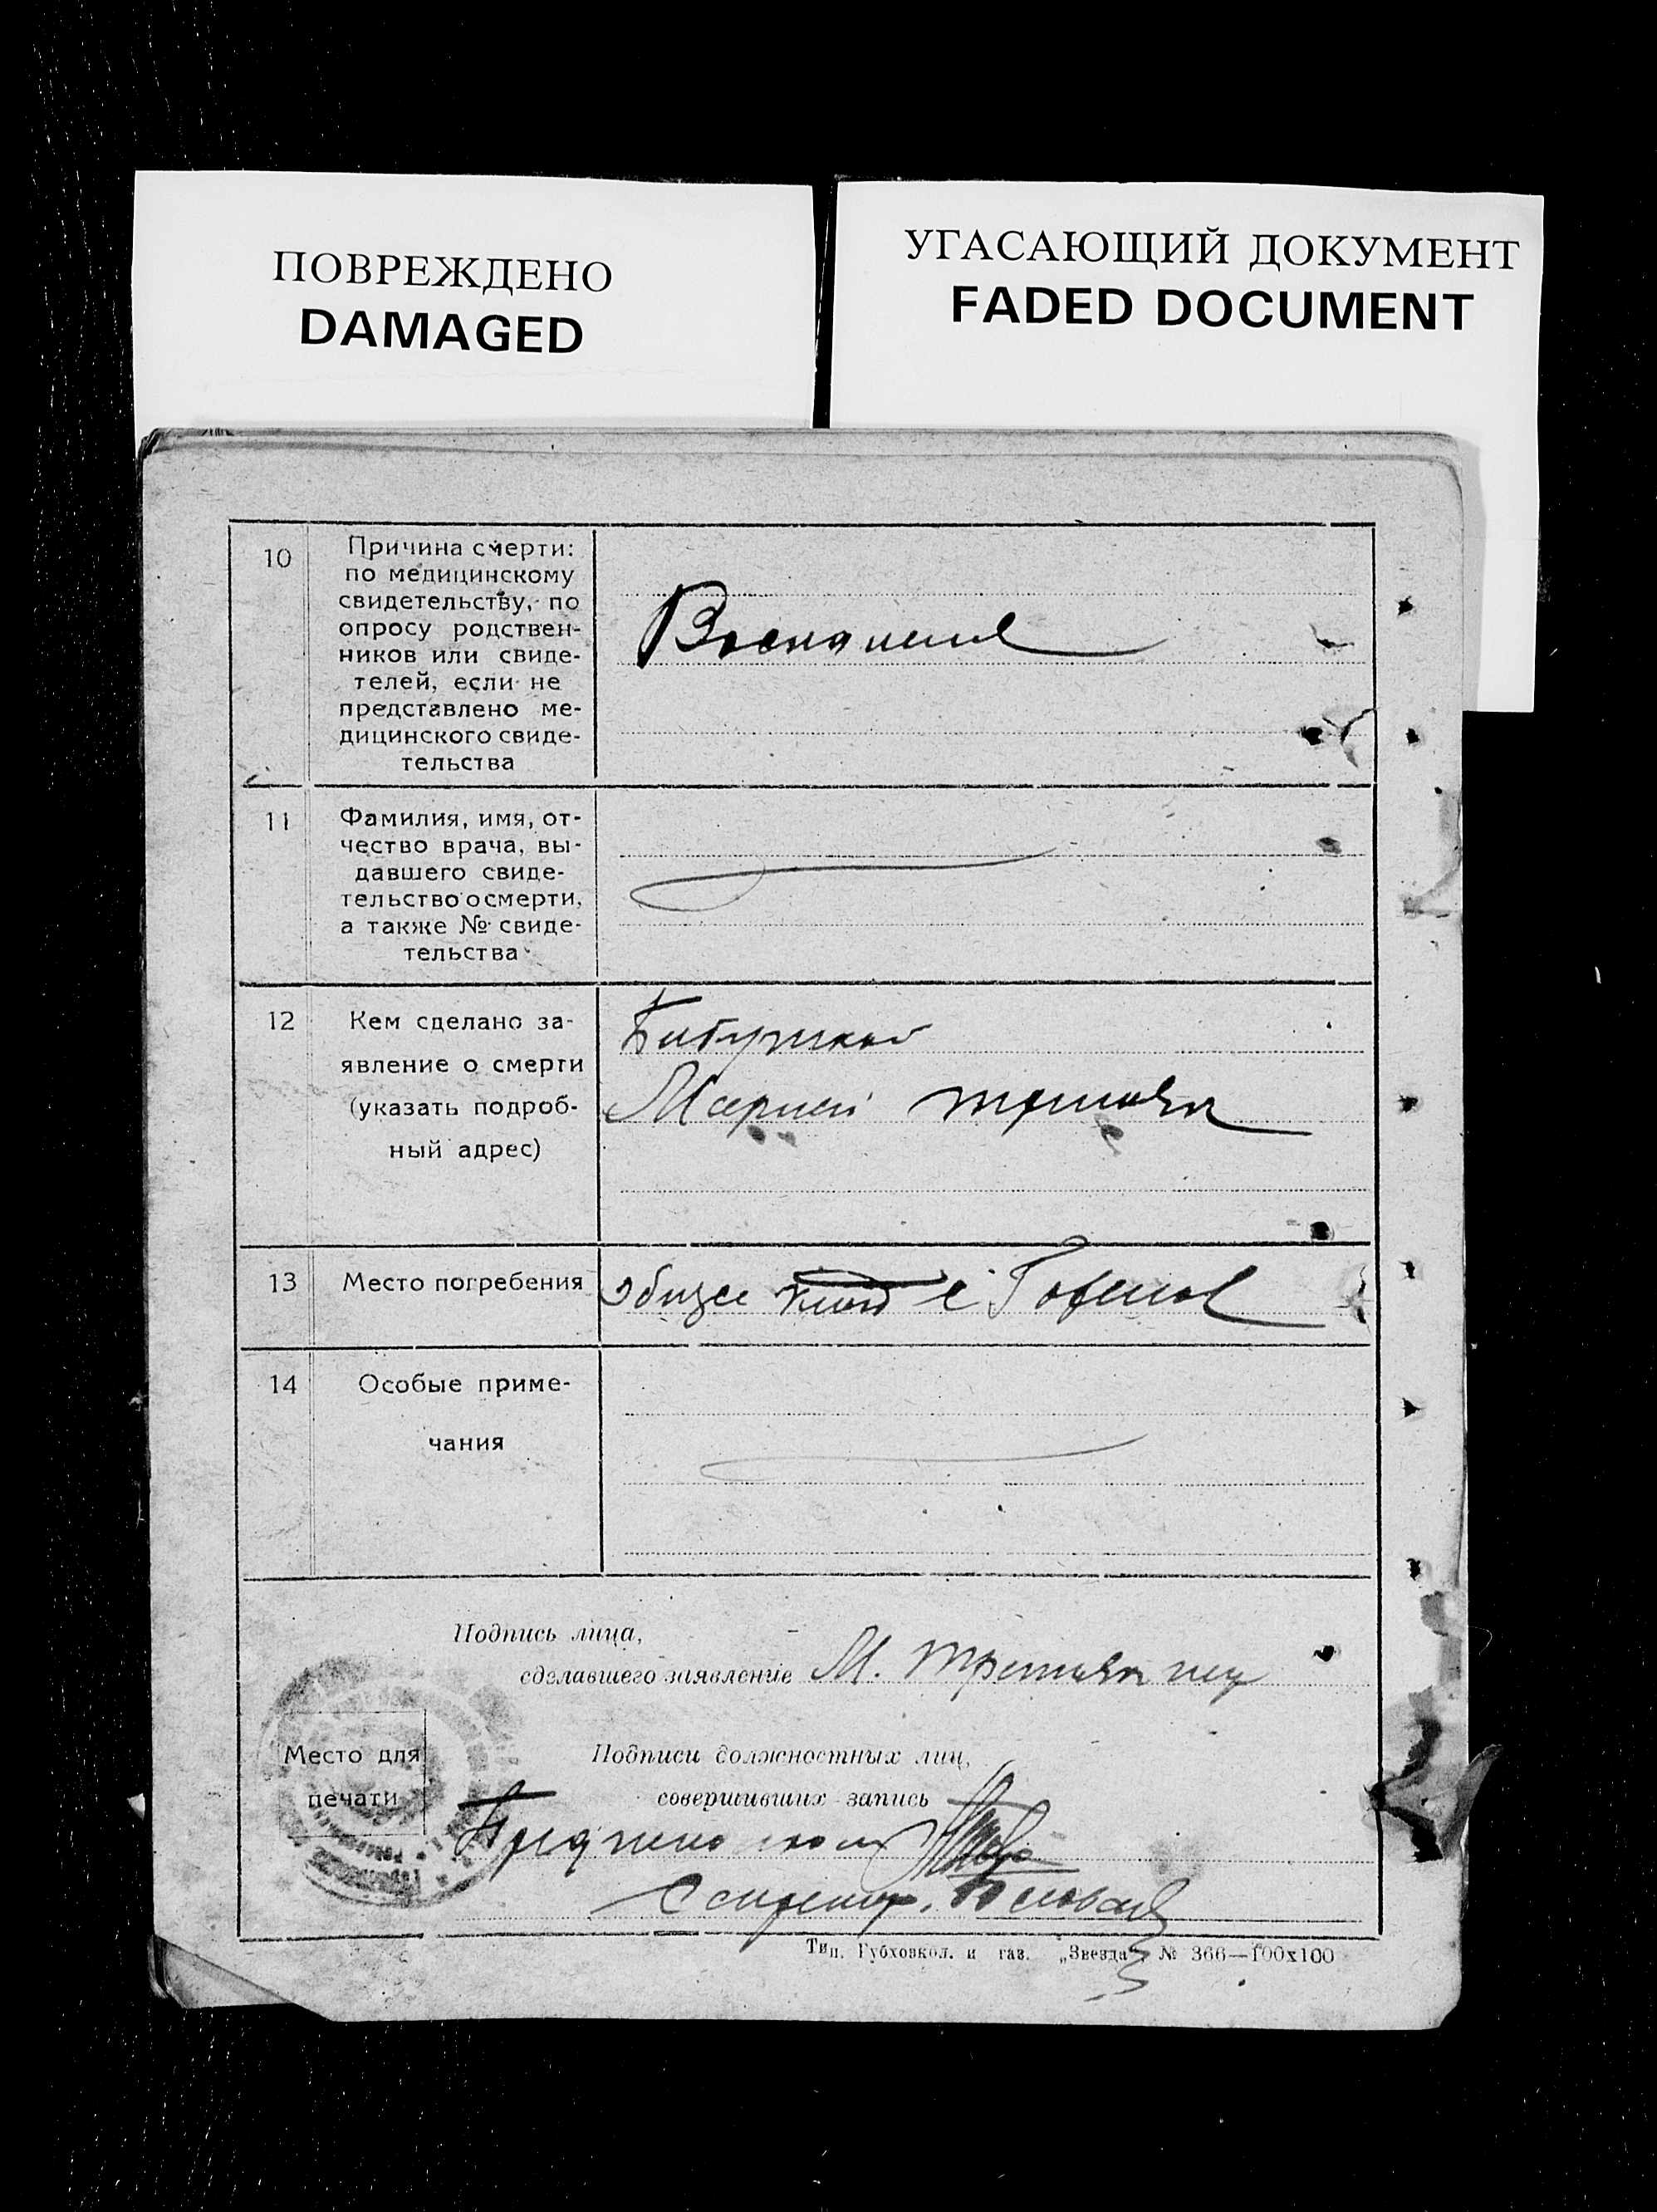 ПОВРЕЖДЕНО
DAMAGED
УГАСАЮЩИЙ ДОКУМЕНТ
FADED DOCUMENT
10
Причина смерти:
по медицинскому
свидетельству, по
опросу родствен-
ников или свиде-
телей, если не
представлено ме-
дицинского свиде-
тельства
Воспаление
11
Фамилия, имя, от-
чество врача, вы-
давшего свиде-
тельство о смерти,
а также № свиде-
тельства
12
Кем сделано за-
явление о смерти
(указать подроб-
ный адрес)
Бабушкой
Марией Третьяк
13
Место погребения
общее клад с
14
Особые приме-
чания
Подпись лица,
сделавшего заявление М. Третьяк
Место для
печати
Подписи должностных лиц,
совершивших запись
Секретар.
Тип. Губховкол. и газ. „Звезда" № 366—100х100